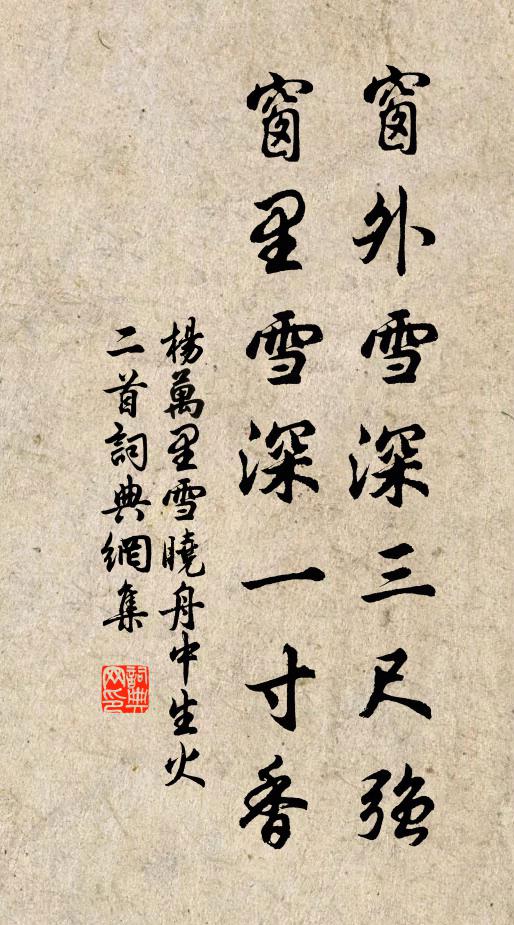 窗外雪深三尺強
窗里雪深一寸香
楊萬里雪曉舟中生火
二首詞典網集
詞典網印